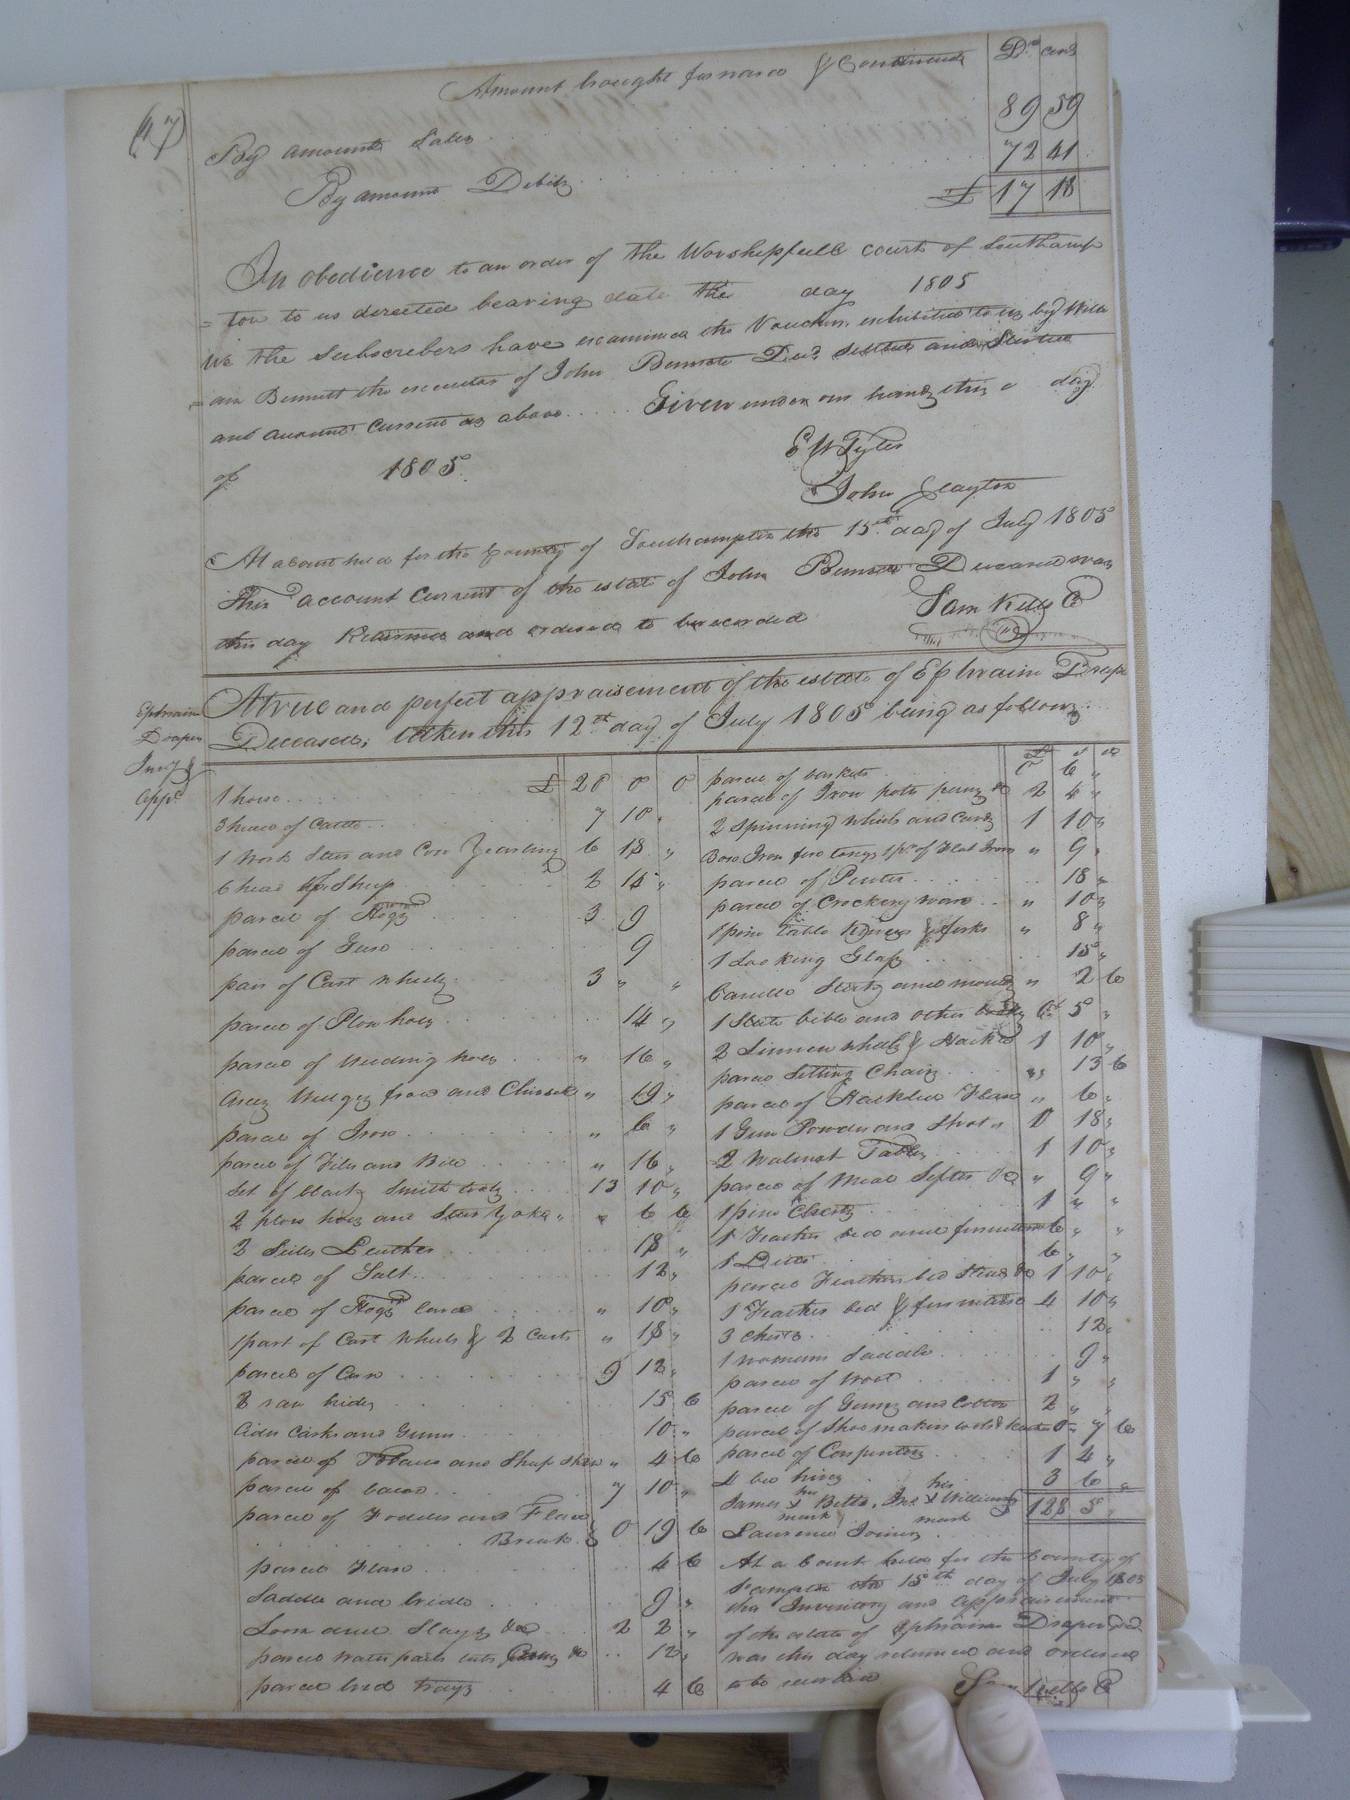 (47)
Amount brought forward & Continued Drs cents
By amount Sales 89 59
By amount Debits 72 41
£ 17 18
In obedience to an order of the Worshipfull court of Southamp
= ton to us directed bearing date the day 1805
We the Subscribers have examined the Vouchers exhibited to us by Willi
= am Bennett the executor of John Bennett Decd. settled and Stated
and account Current as above .... Given under our hands this day
of 1805
E W Tyler
John Clayton
At a Court held for the County of Southampton the 15th day of July 1805
This account Current of the estate of John Bennett Deceased was
this day Returned and ordered to be recorded Sam Kello C
Ephraim
Draper
Invy &
Appt
A true and perfect appraisement of the estate of Ephraim Drape
Deceased, taken this 12th day of July 1805 being as follows
1 horse £ 20 0 0
3 head of Cattle 7 10 "
1 Work Steer and Cow Yearling 6 18 "
6 head of Sheep 2 14 "
parcel of Hogs 3 9
parcel of Geese 9
pair of Cart wheels 3 " "
parcel of Plow hoes 14 "
parcel of Weeding hoes " 16 "
Axes Wedges frow and Chissel " 19 "
parcel of Iron " 6 "
parcel of Files and " 16 "
Set of black Smith tools 13 10 "
2 plow hoes and Steer Yoke " " 6 6
2 Sides Leather 18 "
parcel of Salt 12 "
parcel of Hogs Lard " 10 "
1 part of Cart Wheels & 2 Carts " 18 "
parcel of Corn 9 12 "
2 raw hides 15 6
Cider Casks and 10 "
parcel of and Sheep Shears " 4 6
parcel of bacon 7 10 "
parcel of Fodder and Flax
Break & 0 19 6
parcel Flax 4 6
Saddle and bridle 9 "
Loom and Slays &c 2 2 "
parcel water pails tubs &c 12 "
parcel bread trays 4 6
£ s d
parcel of baskets 0 6 "
parcel of Iron pots &c 2 4 "
2 Spinning Wheels and Cards 1 10 "
Box Iron fire tongs 1 pr of Flat Irons " 9 "
parcel of Pewter 18 "
parcel of Crockery ware " 10 "
1 pine table Knives & forks " 8 "
1 Looking Glass 15 "
Candle Sticks and moulds " 2 6
1 bible and other books 5 "
2 Linnen Wheels & 1 10 "
parcel Setting Chairs " 13 6
parcel of Hackled Flax " 6 "
1 Gun Powder and Shot " 0 18 "
2 Walnut Tables 1 10 "
parcel of Meal Sifters &c " 9 "
1 pine Chest 1 " "
1 Feather bed and furniture 6 " "
1 Ditto 6 " "
parcel Feathers bed Stead &c 1 10 "
1 Feather bed & furniture 4 10 "
3 Chests 12 "
1 womans Saddle 9 "
parcel of Wool 1 " "
parcel of and Cotton 2 " "
parcel of Shoemakers tools & 0 7 6
parcel of Carpenters 1 4 "
4 bee hives 3 6 "
his his
James X Betts, Jno. X Williams £ 128 5 "
mark mark
Lawrence Joiner
At a Court held for the County of
S.ampton the 15th day of July 1805
this Inventory and appraisement
of the estate of Ephraim Draper decd
was this day returned and ordered
to be recorded
Sam Kello C